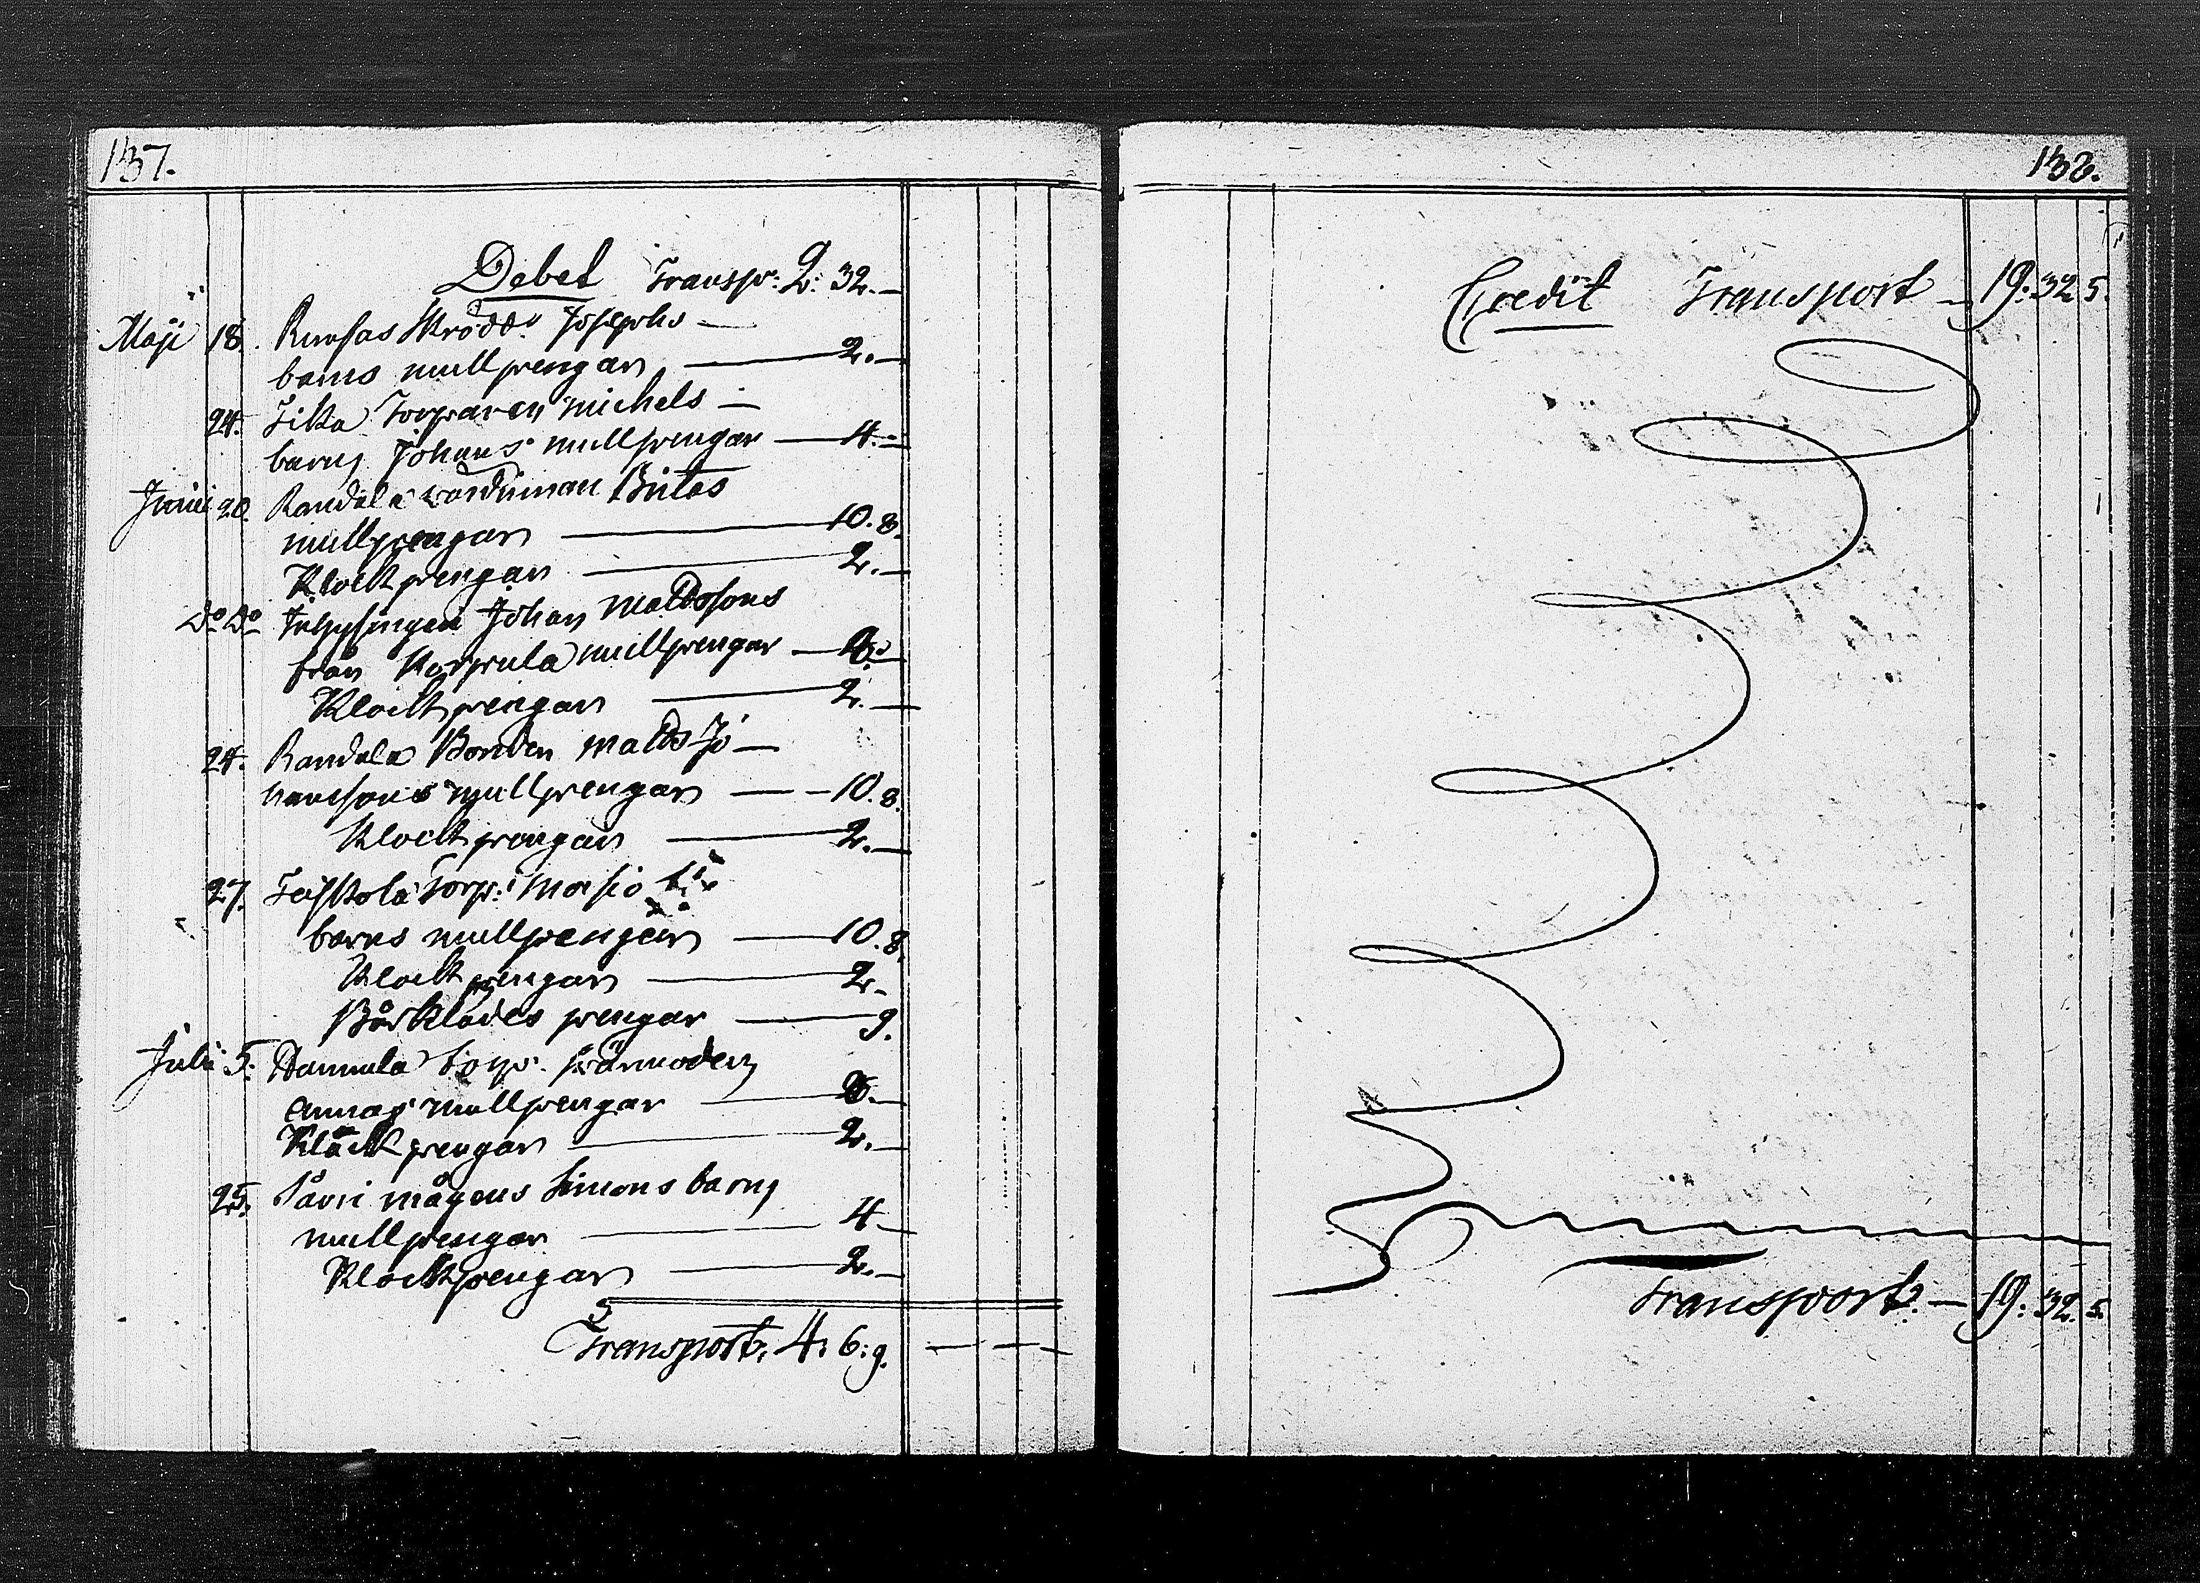 137.
Debet Transp: 2: 32. —
Maji 18. Skrödd: Josephs —
barns mullpengar — 2. —
24. Torparen Michels —
barns Johans mullpengar — 4. —
Junii 20. Randala
mullpengar — 10. 8.
Klockpengar — 2. —
Do Do Inhysingen Johan Mattssons
från Korpula mullpengar —
Klockpengar — 2. —
24. Randala Bonden Matts Jo —
hanssons mullpengar — 10. 8.
Klockpengar — 2. —
27. Torp:
barns mullpengar — 10. 8.
Klockpengar — 2. —
Bårklädes pengar — 9.
Julii 5. Torp. swärmodern
Annas mullpengar —
Klåckpengar — 2. —
25. mågens Simons barns
mullpengar — 4. —
Klockpengar — 2. —
Transport. 4: 6: 9. — — —
138.
Credit Transport — 19: 32. 5.
Transport. — 19: 32. 5.